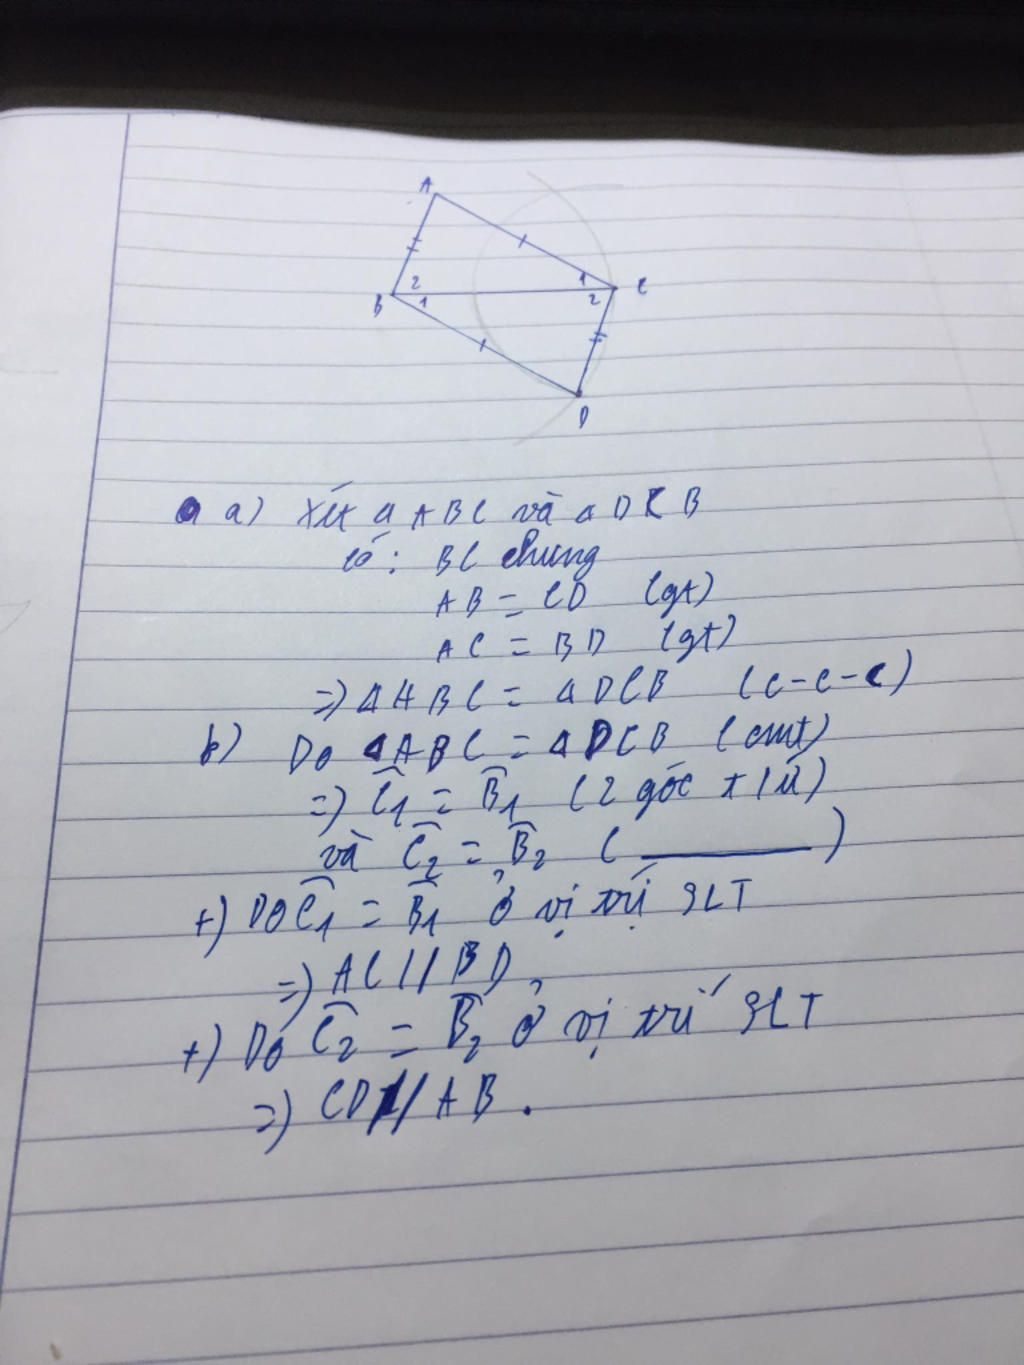 A
2
1
B
1
2
C
D
a) Xét Δ ABC và Δ DCB
có: BC chung
AB = CD (gt)
AC = BD (gt)
=> Δ ABC = Δ DCB (c-c-c)
b) Do Δ ABC = Δ DCB (cmt)
=> Ĉ1 = B̂1 (2 góc t/ứ)
và Ĉ2 = B̂2 ( ______ )
+) Do Ĉ1 = B̂1 ở vị trí SLT
=> AC // BD
+) Do Ĉ2 = B̂2 ở vị trí SLT
=> CD // AB.